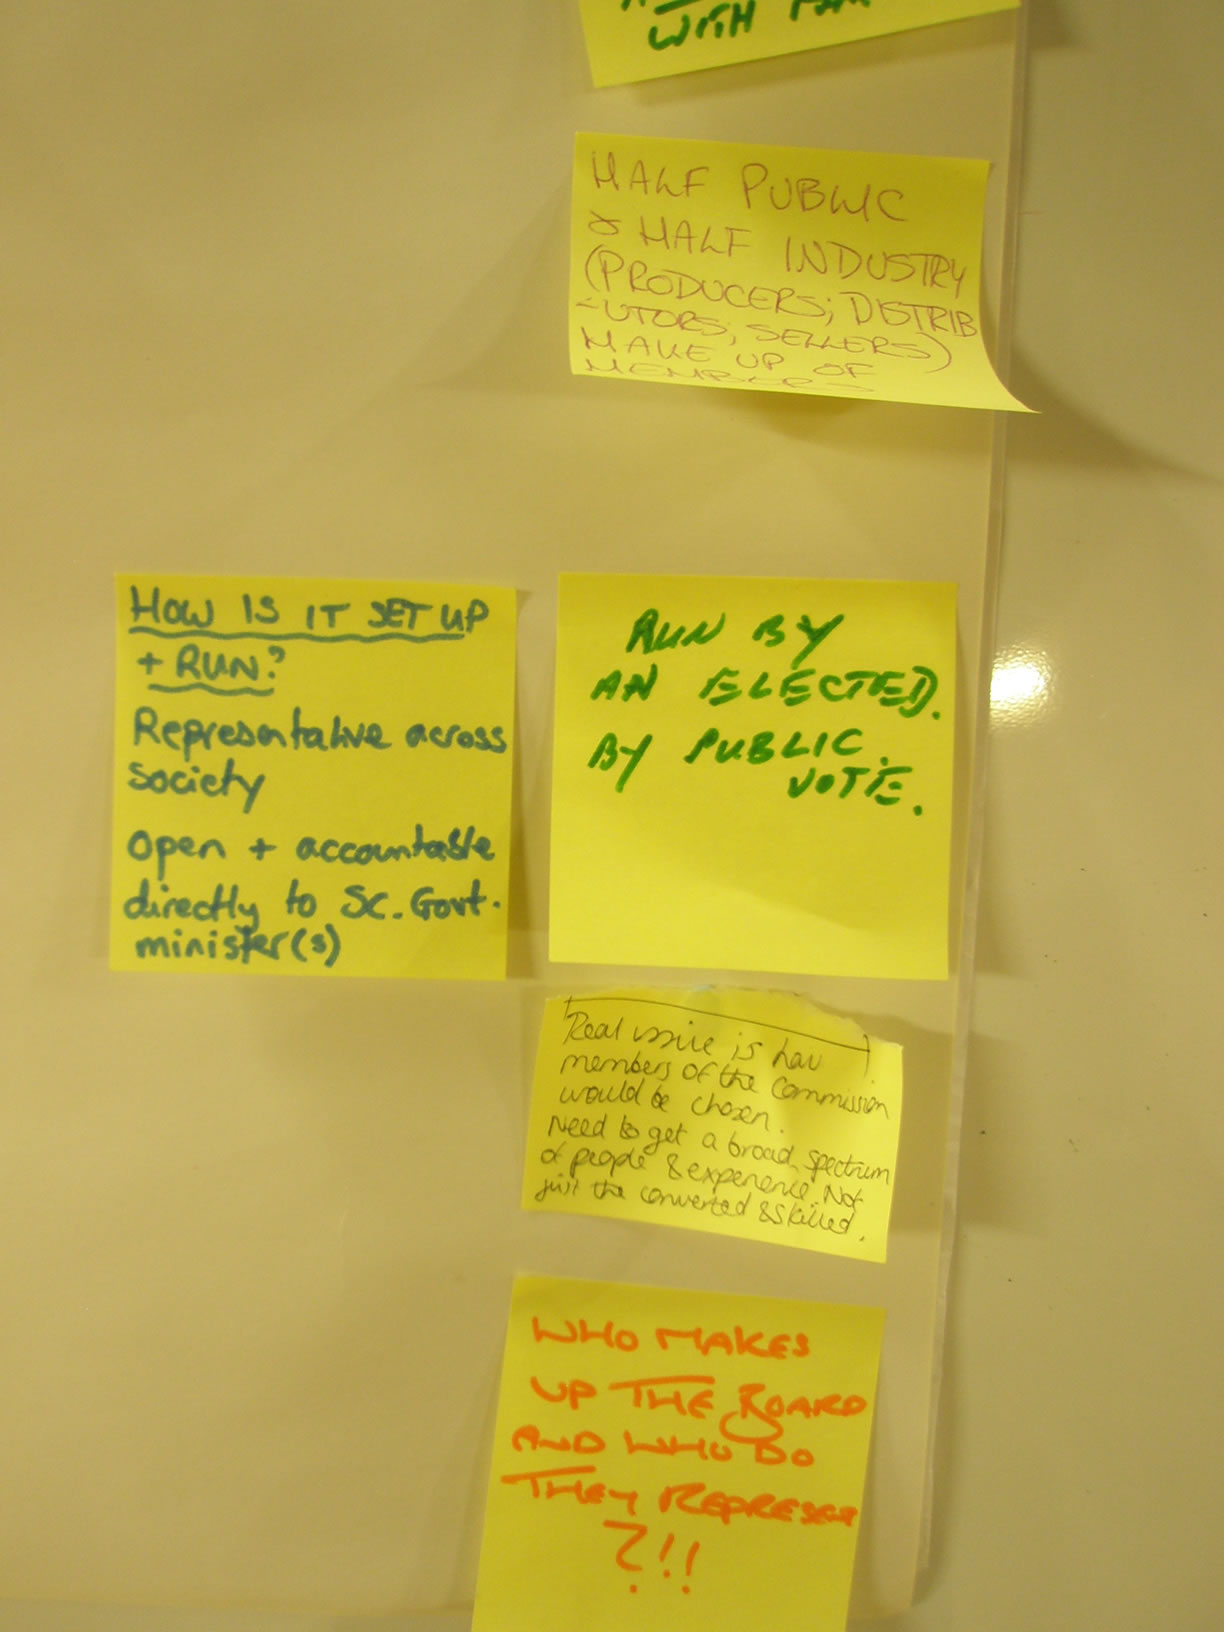 WITH
HALF PUBLIC
& HALF INDUSTRY
(PRODUCERS; DISTRIB
-UTORS; SELLERS)
MAKE UP OF
MEMBERS
HOW IS IT SET UP
+ RUN?
Representative across
society
Open + accountable
directly to Sc. Govt.
minister(s)
RUN BY
AN ELECTED.
BY PUBLIC.
VOTE.
Real issue is how
members of the Commission
would be chosen.
Need to get a broad spectrum
of people & experience. Not
just the converted & skilled.
WHO MAKES
UP THE BOARD
AND WHO DO
THEY REPRESENT
?!!